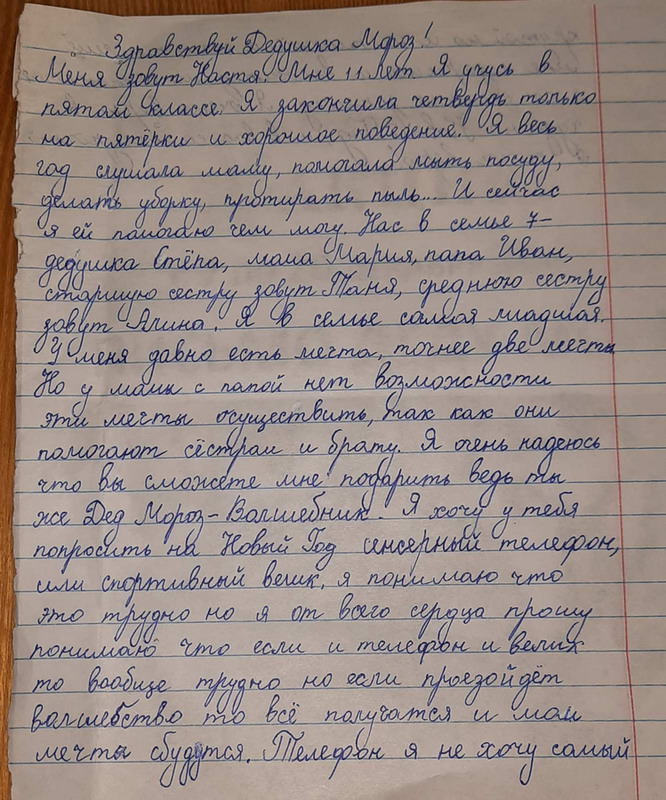 Здравствуй Дедушка Мороз!
Меня зовут Настя. Мне 11 лет. Я учусь в
пятом классе. Я закончила четверть только
на пятёрки и хорошое поведение. Я весь
год слушала маму, помогала мыть посуду,
делать уборку, протирать пыль... И сейчас
я ей помогаю чем могу. Нас в семье 7-
дедушка Стёпа, мама Мария, папа Иван,
старшую сестру зовут Таня, среднюю сестру
зовут Алина. Я в семье самая младшая.
У меня давно есть мечта, точнее две мечты
Но у мамы с папой нет возможности
эти мечты осуществить, так как они
помогают сёстрам и брату. Я очень надеюсь
что вы сможете мне подарить ведь ты
же Дед Мороз-Волшебник. Я хочу у тебя
попросить на Новый Год сенсерный телефон,
или спортивный велик, я понимаю что
это трудно но я от всего сердца прошу
понимаю что если и телефон и велик
то вообще трудно но если проезойдёт
волшебство то всё получатся и мои
мечты сбудутся. Телефон я не хочу самый